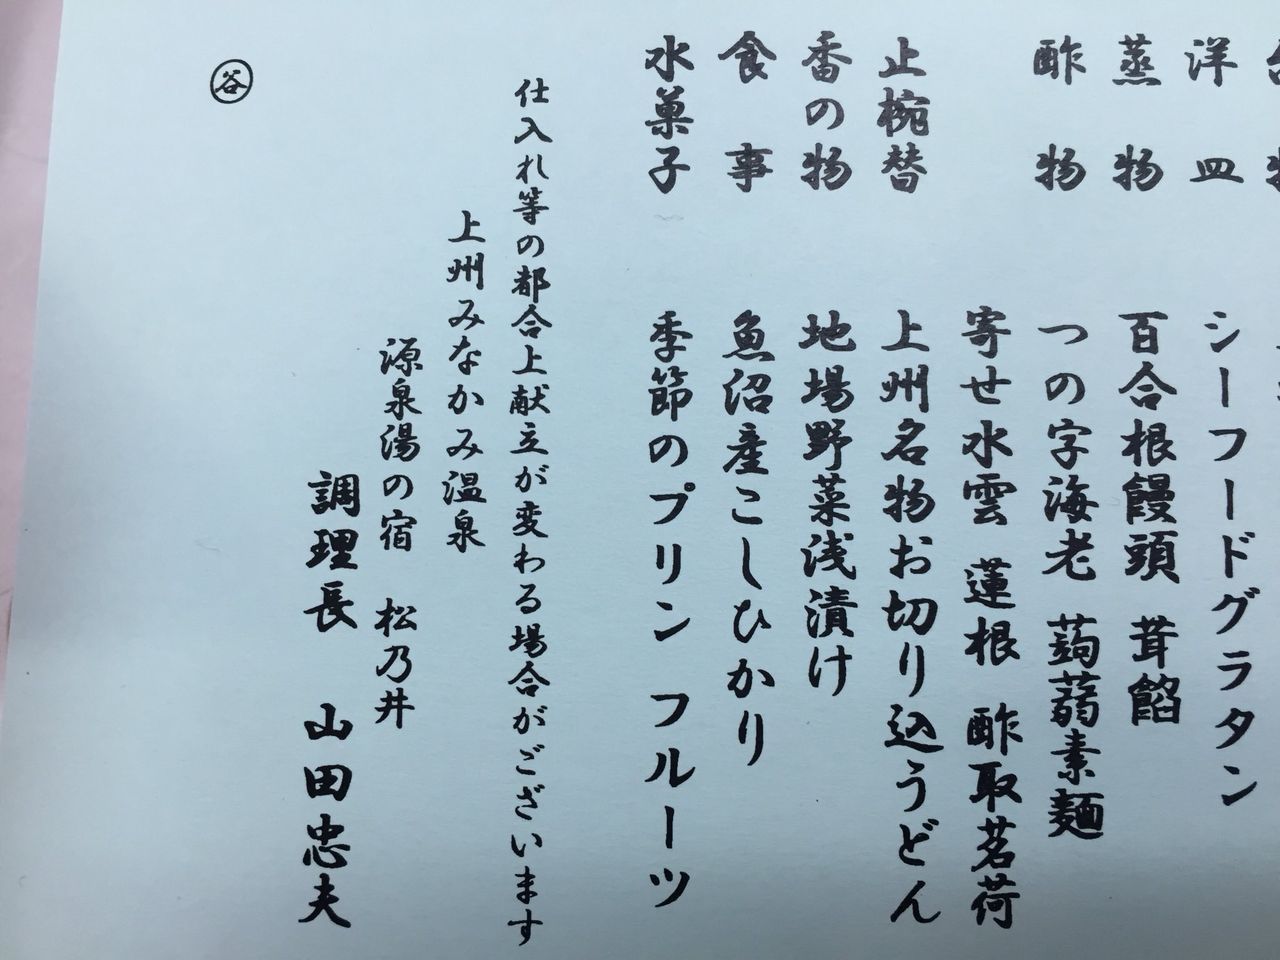 洋皿 シーフードグラタン
蒸物 百合根饅頭 茸餡
酢物 つの字海老 蒟蒻素麺
寄せ水雲 蓮根 酢取茗荷
止椀替 上州名物お切り込うどん
香の物 地場野菜浅漬け
食事 魚沼産こしひかり
水菓子 季節のプリン フルーツ
仕入れ等の都合上献立が変わる場合がございます
上州みなかみ温泉
源泉湯の宿 松乃井
調理長 山田忠夫
谷